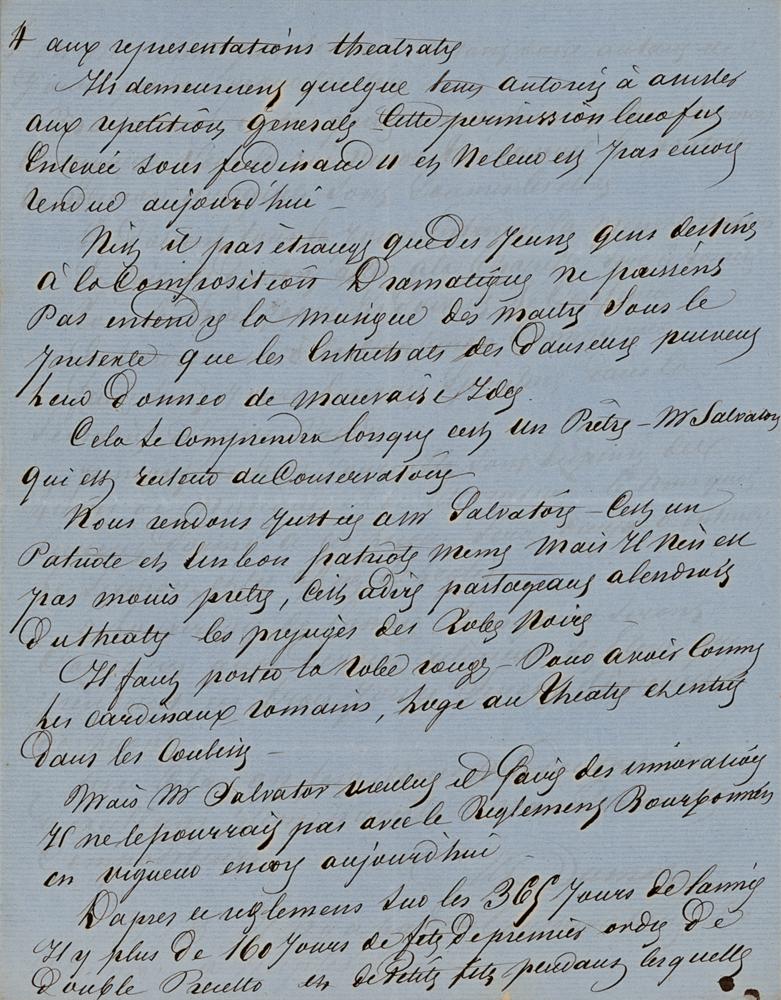 4 aux representations theatrales
Ils demeurerent quelque tems autorisés à assister
aux repetitions generales – Cette permission leur fut
Enlevée sous ferdinand II et ne leur est pas encore
rendue aujourd'hui –
N'est il pas étrange que des jeunes gens destinés
à la Composition Dramatique ne puissent
Pas entendre la musique des maitres sous le
pretexte que les Entrechats des danseuses peuvent
leur donner de mauvaises Idées
Cela se comprendra lorsque c'est un Prêtre – Mr Salvatore
qui est recteur du Conservatoire
Nous rendons justice a Mr Salvatore – C'est un
Patriote et un bon patriote meme mais Il n'en est
pas moins pretre, C'est a dire partageant a l'endroit
Du theatre les prejuges des Robes Noires
Il faut porter la robe rouge – Pour avoir Comme
les cardinaux romains, loge au Theatre et entrée
dans les Coulisses –
Mais Mr Salvator voulut il faire des innovations
Il ne le pourrait pas avec le Reglement Bourbonien
en vigueur encore aujourd'hui
D'apres ce reglement sur les 365 Jours de l'année
Il y plus de 160 Jours de fetes De premier ordre De
Double et de Petites fetes pendant lesquelles